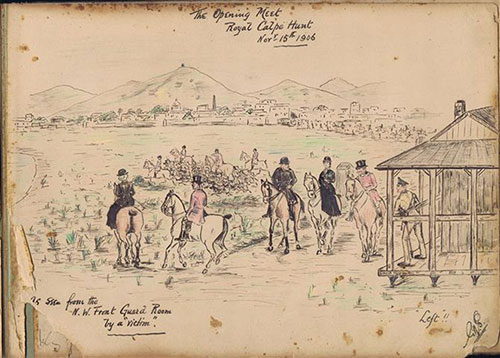 The Opening Meet
Royal Calpe Hunt
Novr. 15th 1906
As seen from the
N.W. Front Guard Room
by a "victim".
'Left'!!